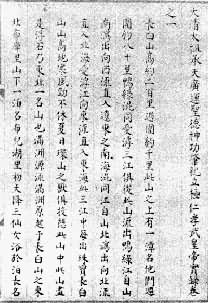 大清太祖承天廣運聖德神功肇紀立極仁孝武皇帝實錄卷
之一
長白山高約二百里週圍約千里此山之上有一潭名他們週
圍約八十里鴨綠混同愛滹三江俱從此山流出鴨綠江自山
南瀉出向西流直入遼東之南海混同江自山北瀉出向北流
直入北海愛滹江向東流直入東海此三江中每出珠寶長白
山山高地寒風勁不休夏日環山之獸俱投憩此山中此山盡
是浮石乃東北一名山也滿洲源流滿洲原起于長白山之東
北布庫里山下一泊名布兒湖里初天降三仙女浴於泊長名